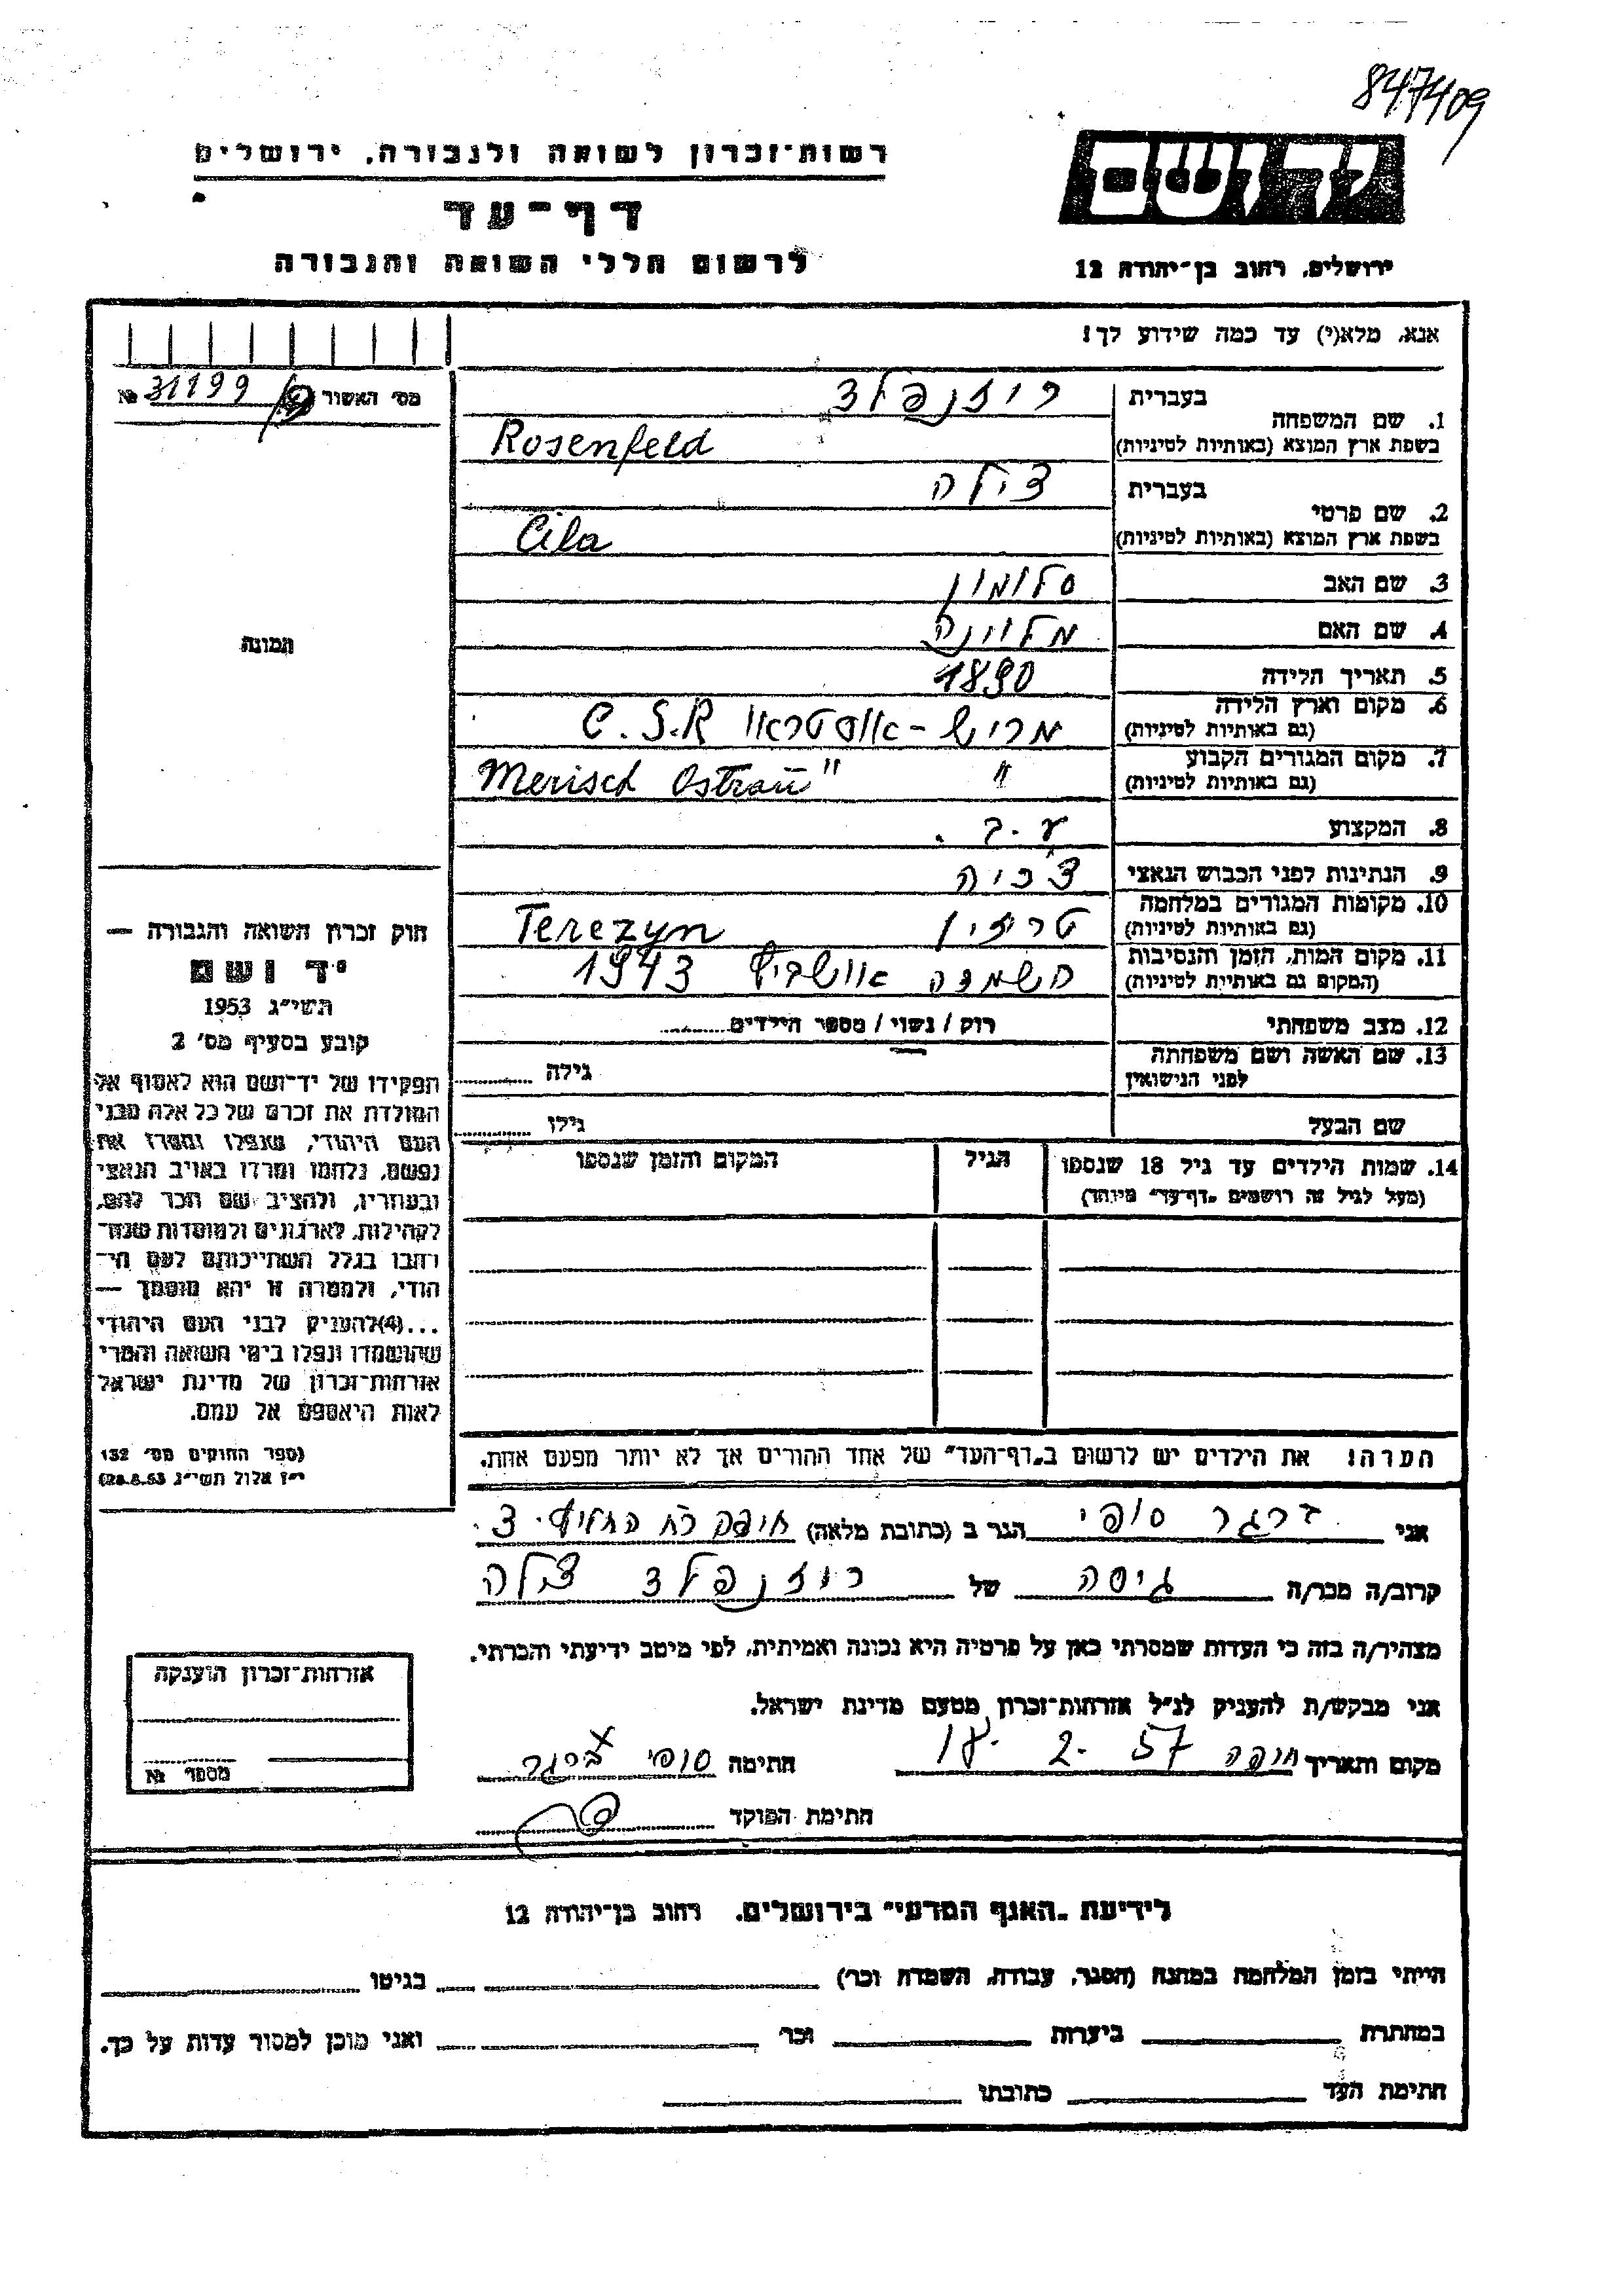 847409
רשות־זכרון לשואה ולגבורה, ירושלים
יד ושם
דף־עד
לרשום חללי השואה והגבורה
ירושלים, רחוב בן־יהודה 12
אנא, מלא(י) עד כמה שידוע לך!
מס׳ האשור № 31199
1. שם המשפחה בעברית רוזנפלד
בשפת ארץ המוצא (באותיות לטיניות) Rosenfeld
2. שם פרטי בעברית צילה
בשפת ארץ המוצא (באותיות לטיניות) Cila
3. שם האב סלומון
4. שם האם מלוינה
תמונה
5. תאריך הלידה 1890
6. מקום וארץ הלידה מריש-אוסטראו C.S.R
(גם באותיות לטיניות)
7. מקום המגורים הקבוע " Merisch Ostrau"
(גם באותיות לטיניות)
8. המקצוע ע.ב.
9. הנתינות לפני הכבוש הנאצי צ'כיה
10. מקומות המגורים במלחמה טריזין Terezyn
(גם באותיות לטיניות)
11. מקום המות, הזמן והנסיבות השמדה אושביץ 1943
(המקום גם באותיות לטיניות)
12. מצב משפחתי רוק / נשוי / מספר הילדים
13. שם האשה ושם משפחתה גילה
לפני הנישואין
שם הבעל גילו
14. שמות הילדים עד גיל 18 שנספו הגיל המקום והזמן שנספו
(מעל לגיל זה רושמים „דף־עד״ מיוחד)
חוק זכרון השואה והגבורה —
יד ושם
תשי״ג 1953
קובע בסעיף מס׳ 2
תפקידו של יד־ושם הוא לאסוף אל
המולדת את זכרם של כל אלה מבני
העם היהודי, שנפלו ומסרו את
נפשם, נלחמו ומרדו באויב הנאצי
ובעוזריו, ולהציב שם וזכר להם,
לקהילות, לארגונים ולמוסדות שנח־
רבו בגלל השתייכותם לעם הי־
הודי, ולמטרה זו יהא מוסמך —
...(4)להעניק לבני העם היהודי
שהושמדו ונפלו בימי השואה והמרי
אזרחות־זכרון של מדינת ישראל
לאות היאספם אל עמם.
(ספר החוקים מס׳ 132
י״ז אלול תשי״ג 28.8.53)
הערה! את הילדים יש לרשום ב„דף־העד״ של אחד ההורים אך לא יותר מפעם אחת.
אני סופי הגר ב (כתובת מלאה) חיפה רח החלוץ 3.
קרוב/ה מכר/ה גיסה של רוזנפלד צילה
מצהיר/ה בזה כי העדות שמסרתי כאן על פרטיה היא נכונה ואמיתית, לפי מיטב ידיעתי והכרתי.
אני מבקש/ת להעניק לנ״ל אזרחות־זכרון מטעם מדינת ישראל.
מקום ותאריך חיפה 18. 2. 57 חתימה סופי
חתימת הפוקד
אזרחות־זכרון הוענקה
מספר №
לידיעת „האגף המדעי״ בירושלים. רחוב בן־יהודה 12
הייתי בזמן המלחמה במחנה (הסגר, עבודה, השמדה וכר׳) בגיטו
במחתרת ביערות וכר ואני מוכן למסור עדות על כך.
חתימת העד כתובתו